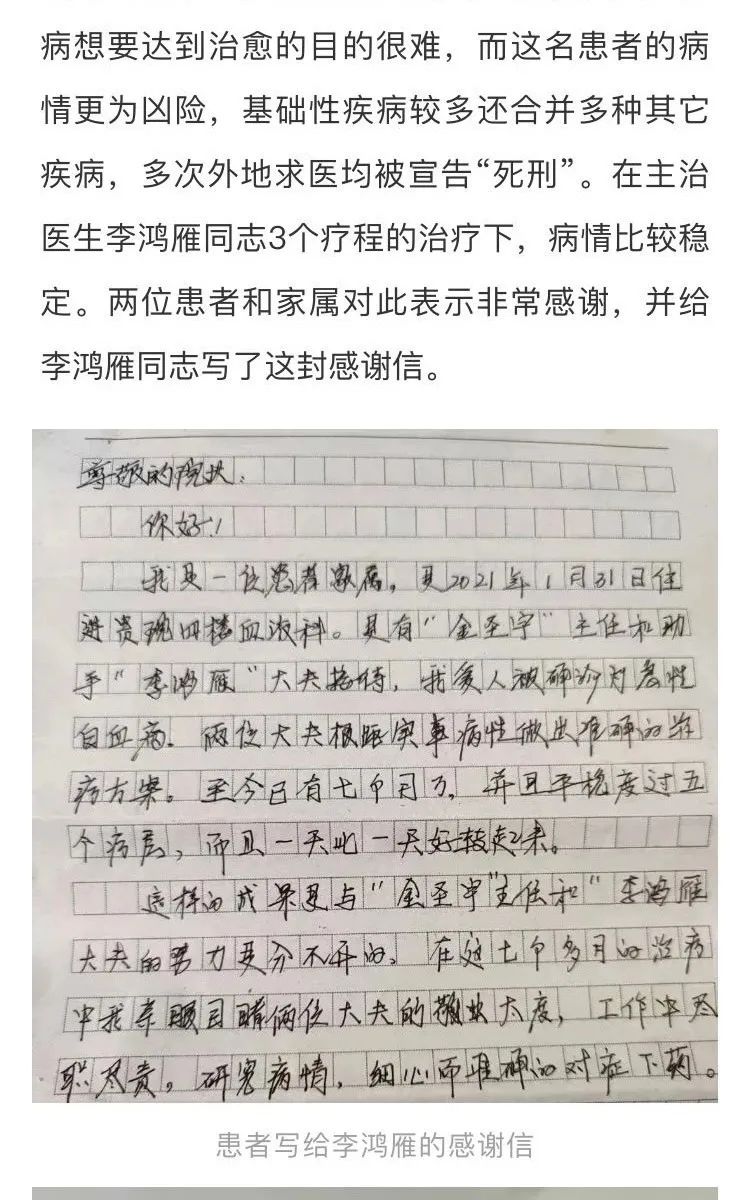 病想要达到治愈的目的很难，而这名患者的病
情更为凶险，基础性疾病较多还合并多种其它
疾病，多次外地求医均被宣告“死刑”。在主治
医生李鸿雁同志3个疗程的治疗下，病情比较稳
定。两位患者和家属对此表示非常感谢，并给
李鸿雁同志写了这封感谢信。
尊敬的院长：
你好！
我是一位患者家属，是2021年1月31日住
进贵院四楼血液科。是有“金圣宇”主任和助
手“李鸿雁”大夫接待，我爱人被确诊为急性
白血病。两位大夫根据实事病性做出准确的治
疗方案。至今已有七个月了，并且平稳度过五
个疗层，而且一天比一天好转起来。
这样的成果是与“金圣宇”主任和“李鸿雁
大夫的努力是分不开的。在这七个多月的治疗
中我亲眼目睹俩位大夫的敬业太度，工作中尽
职尽责。研究病情，细心而准确的对症下药。
患者写给李鸿雁的感谢信